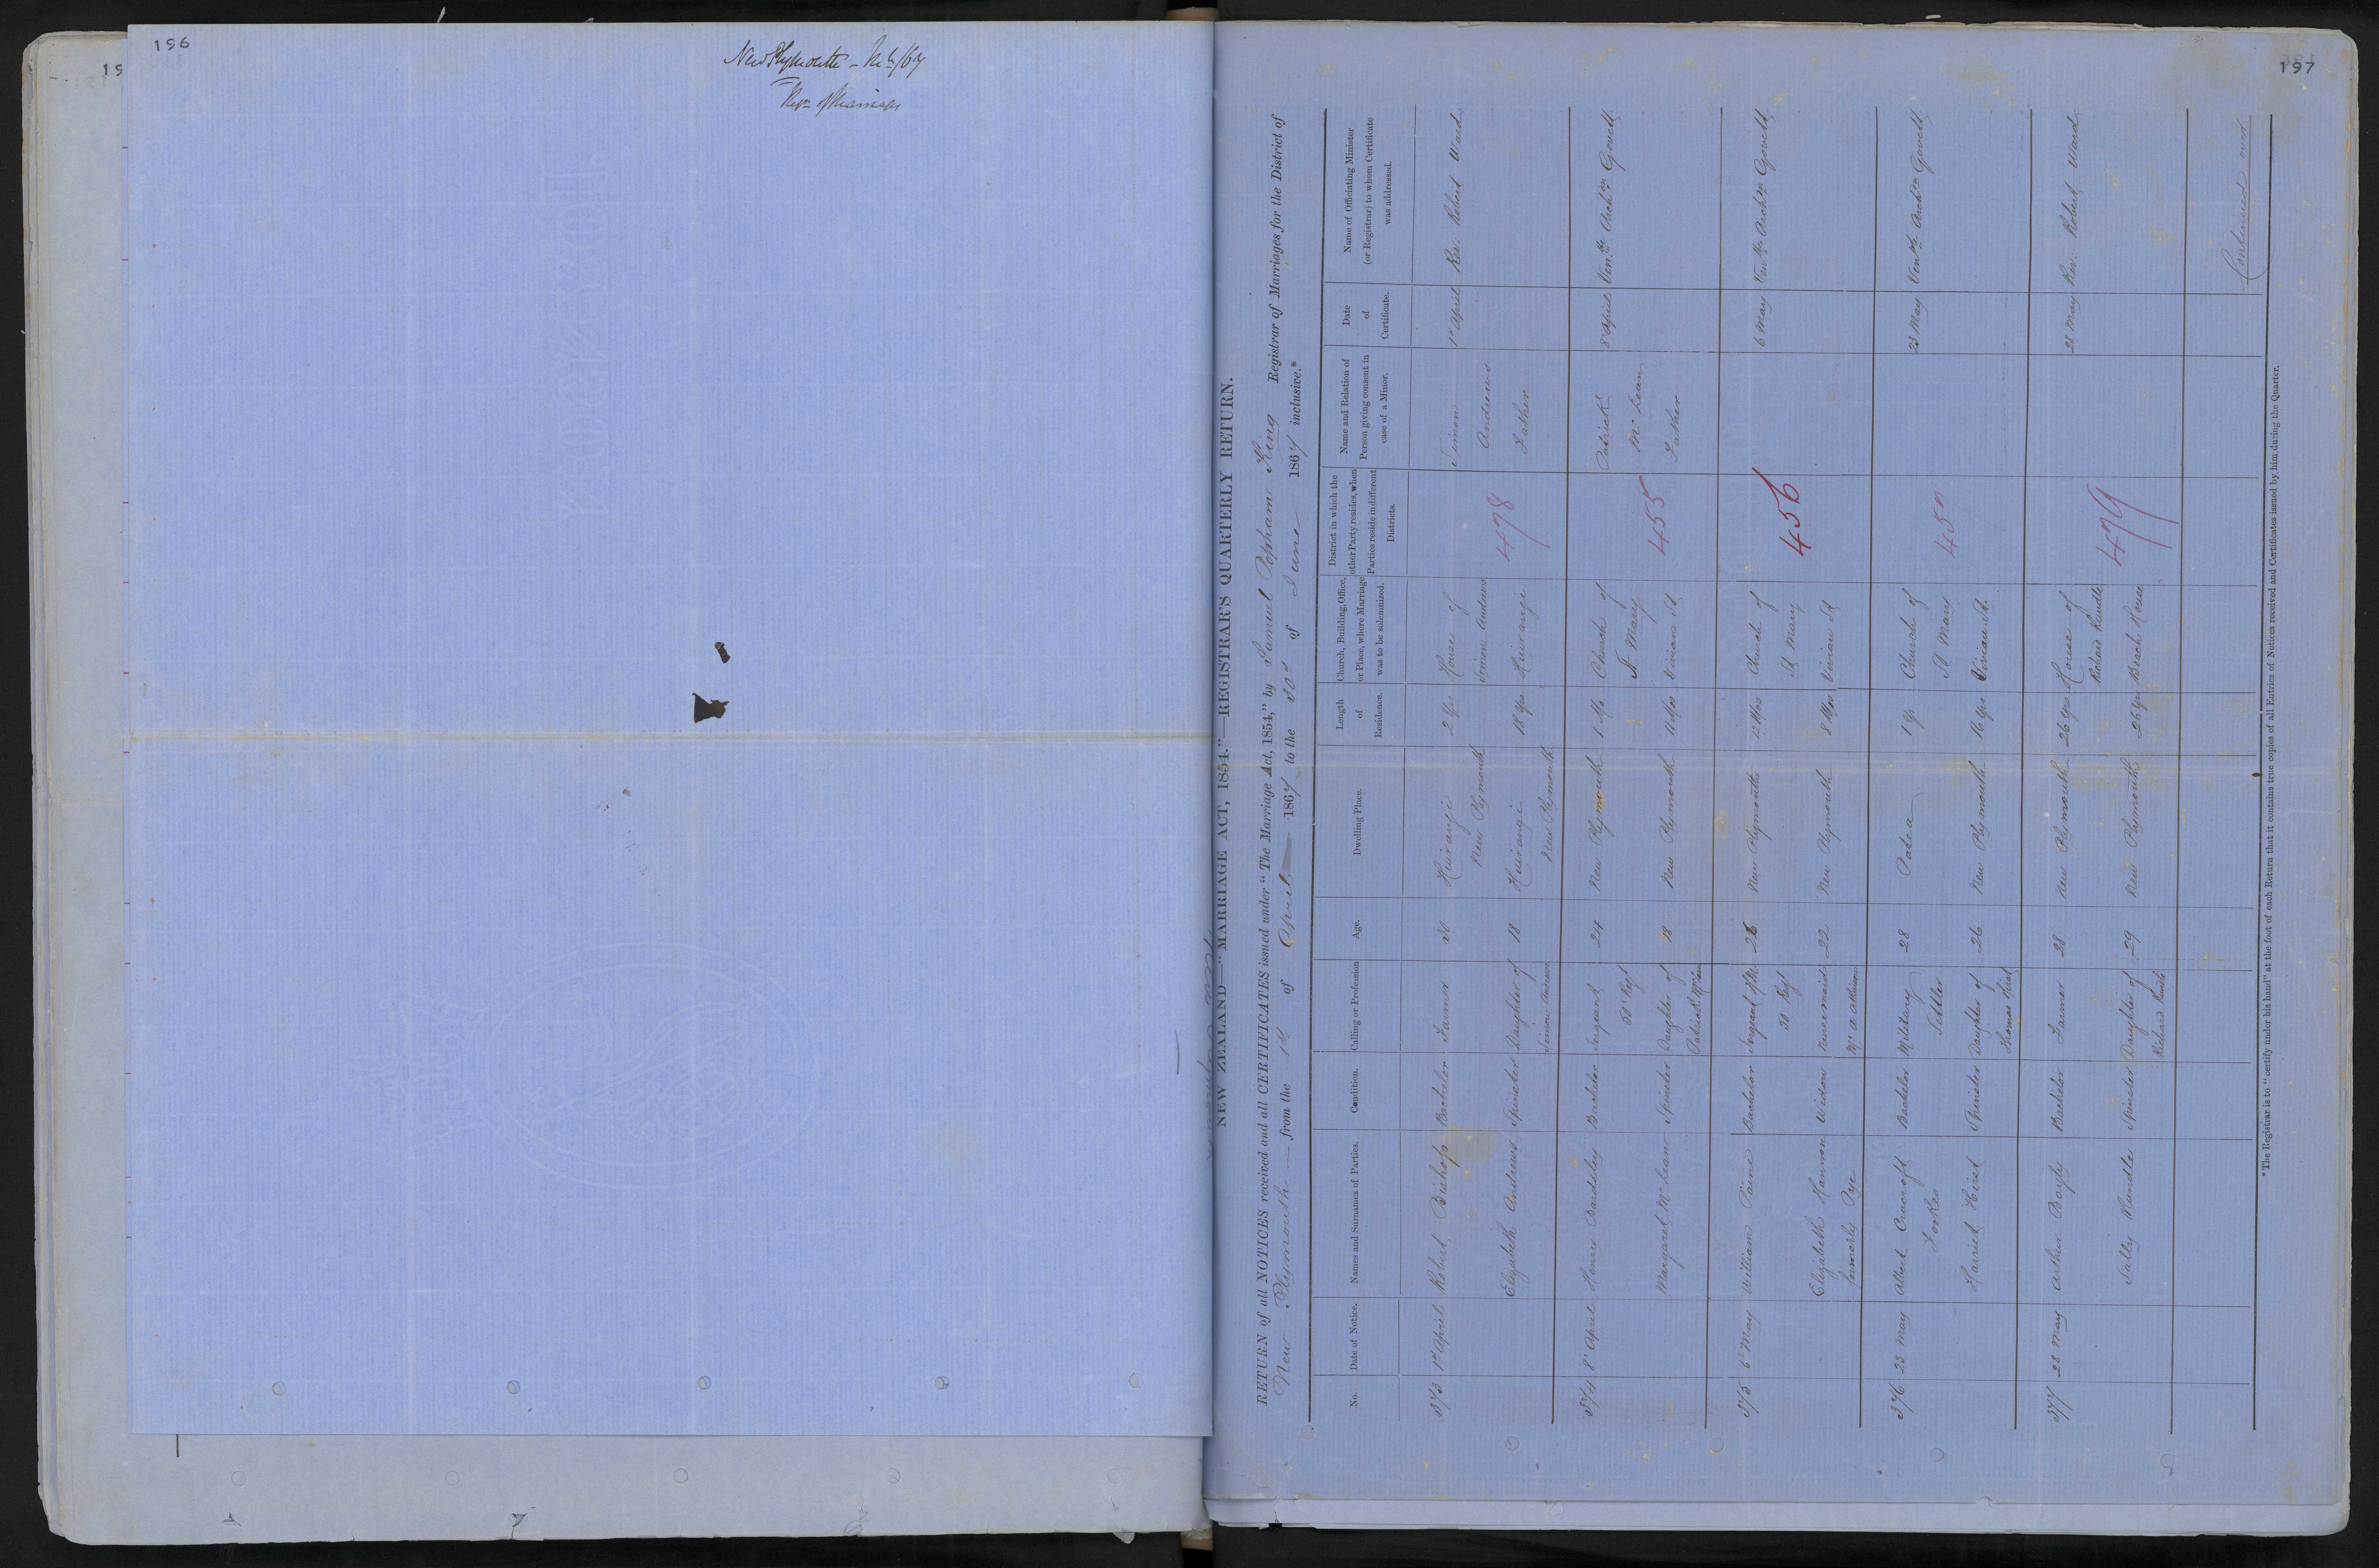 196
New Plymouth -
197
NEW ZEALAND—"MARRIAGE ACT, 1854."—REGISTRAR'S QUARTERLY RETURN.
RETURN of all NOTICES received and all CERTIFICATES issued under "The Marriage Act, 1854," by Samuel Popham King Registrar of Marriages for the District of
New Plymouth from the 1st of April 1867 to the 30th of June 1867 inclusive.*
No.
Date of Notice.
Names and Surnames of Parties.
Condition.
Calling or Profession
Age.
Dwelling Place.
Length
of
Residence.
Church, Building, Office,
or Place, where Marriage
was to be solemnized.
District in which the
other Party resides, when
Parties reside in different
Districts.
Name and Relation of
Person giving consent in
case of a Minor.
Date
of
Certificate.
Name of Officiating Minister
(or Registrar) to whom Certificate
was addressed.
373 1st April Robert Bishop Bachelor Farmer 30 Huirangi
New Plymouth 2 yrs House of
Simon Andrews
Huirangi 478 Simon
Andrews
Father 1st April Rev. Robert Ward
Elizabeth Andrews Spinster Daughter of
Simon Andrews 18 Huirangi
New Plymouth 18 yrs
374 8 April Henry Bardsley Bachelor Sergeant
50 Regt 24 New Plymouth Church of
St Mary
Vivian St 455 Patrick
McLean
Father 8 April Venble Archdn Govett
Margaret McLean Spinster Daughter of
Patrick McLean 18 New Plymouth
375 6 May William Paine Bachelor Sergeant
50 Regt 26 New Plymouth 12 Mos Church of
St Mary
Vivian St 456 6 May Venble Archdn Govett
Elizabeth Hannon
formerly Pye Widow Housemaid
22 New Plymouth 8 Mos
376 23 May Albert Cracroft
Fookes Bachelor Military
Settler 28 Patea 1 yr Church of
St Mary
Vivian St. 457 23 May Venble Archdn Govett
Harriet Hirst Spinster Daughter of
Thomas Hirst 26 New Plymouth 16 yrs
377 28 May Arthur Bayly Bachelor Farmer 28 New Plymouth 26 yrs House of
Richard Rundle
Beach House 479 28 May Rev. Robert Ward
Sally Rundle Spinster Daughter of
Richard Rundle 29 New Plymouth 26 yrs
Continued over
* The Registrar is to "certify under his hand" at the foot of each Return that it contains true copies of all Entries of Notices received and Certificates issued by him during the Quarter.